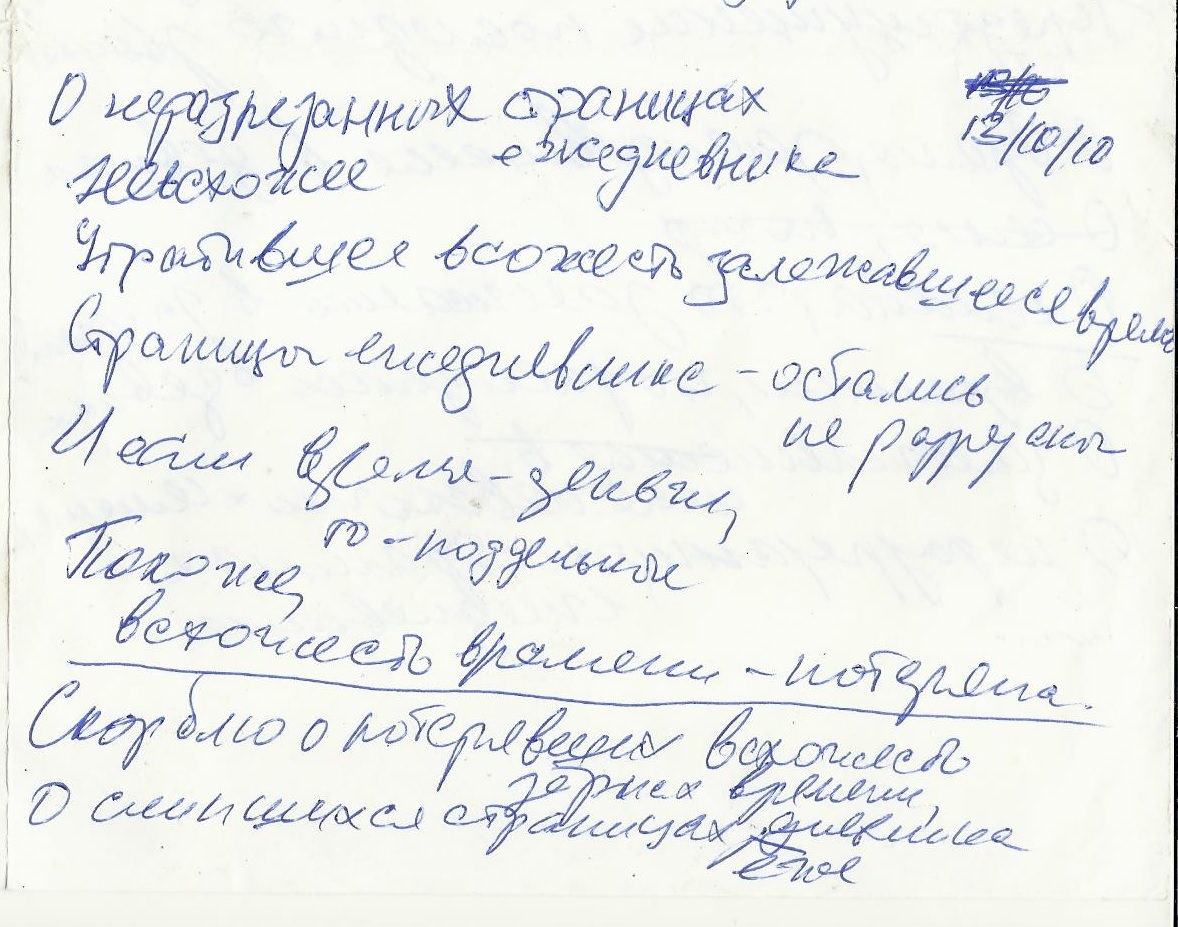 О неразрезанных страницах
13/10/10
ежедневника
Невсхожее
Утратившее всхожесть залежавшееся время
Страницы ежедневника - остались
не разрезаны
И если время - деньги,
то - поддельные
Похоже,
всхожесть времени - потеряна.
Скорблю о потерявших всхожесть
зёрнах времени,
О слипшихся страницах дневника